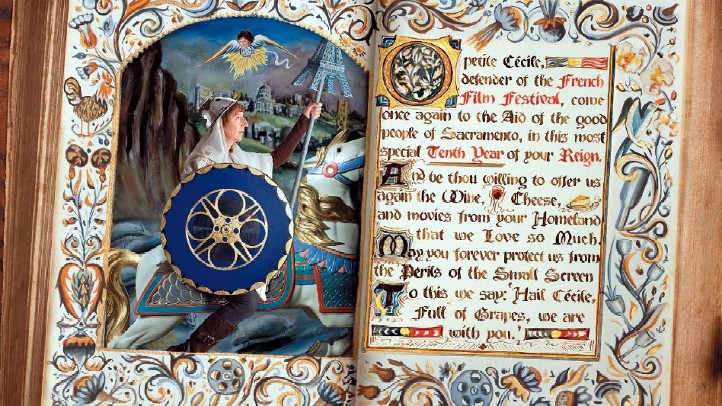 O petite Cécile,
defender of the French
Film Festival, come
once again to the Aid of the good
people of Sacramento, in this most
special Tenth Year of your Reign.
And be thou willing to offer us
again the Wine, Cheese,
and movies from your Homeland
that we Love so Much.
May you forever protect us from
the Perils of the Small Screen
To this we say: 'Hail Cécile,
Full of Grapes, we are
with you.'